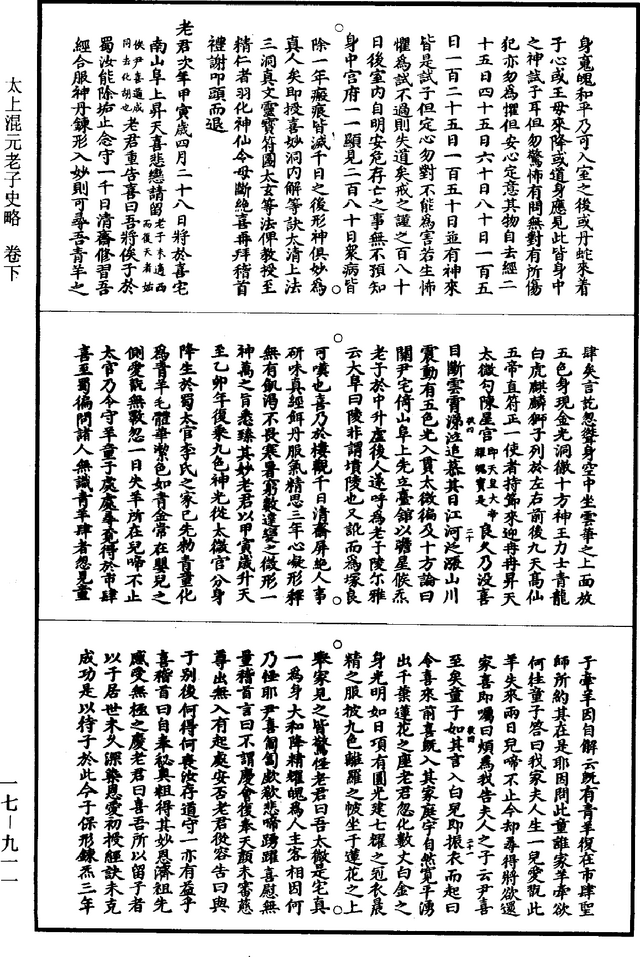 身寬魄和平乃可入室之後或丹蛇來着
子心或王母來降或道身應見此皆身中
之神試子耳但勿驚怖有問無對有所傷
犯亦勿為懼但安心定意其物自去經二
十五日四十五日六十日八十日一百五
日一百二十五日一百五十日並有神來
皆是試子但定心勿對不能為害若生怖
懼為試不過則失道矣戒之謹之百八十
日後室內自明安危存亡之事無不預知
身中宮府一一顯見二百八十日衆病皆
除一年瘢痕皆滅千日之後形神俱妙為
真人矣即授喜妙洞內解等訣太清上法
三洞真文靈寶符圖太玄等法俾教授至
精仁者羽化神仙今毋斷絶喜再拜稽首
禮謝叩頭而退
老君次年甲寅歲四月二十八日將於喜宅
南山阜上昇天喜悲戀請留老子未適西而復天者始
俟尹喜道成同去化胡也老君重告喜曰吾將俟子於
蜀汝能除垢止念守一千日清齋修習吾
經合服神丹鍊形入妙則可尋吾青羊之
肆矣言訖忽聳身空中坐雲華之上面放
五色身現金光洞徹十方神王力士青龍
白虎麒麟獅子列於左右前後九天高仙
五帝直符正一使者持節來迎冉冉昇天
太微勾陳星宮即天皇大帝耀魄寶是良久乃没喜
目斷雲霄涕泣追慕其日江河泛漲山川
震動有五色光入貫太微徧及十方論曰
關尹宅倚山阜上先立臺舘以瞻星候炁
老子於中升虛後人遂呼為老子陵尔雅
云大阜曰陵非謂墳陵也又訛而為塚良
可嘆也喜乃於樓觀千日清齋屏絶人事
研味真經餌丹服氣精思三年心凝形釋
無有飢渴不畏寒暑窮數達變之微形一
神萬之旨悉臻其妙老君以甲寅歲升天
至乙卯年復乘九色神光從太微宮分身
降生於蜀太官李氏之家已先勑青童化
為青羊毛體華絜色如青金常在嬰兒之
側愛翫無斁忽一日失羊所在兒啼不止
太官乃令守羊童子處處尋覓得於市肆
喜至蜀徧問諸人無識青羊肆者忽見童
子牽羊因自解云既有青羊復在市肆聖
師所約其在是耶因問此童誰家羊牽欲
何往童子答曰我家夫人生一兒愛翫此
羊失來兩日兒啼不止今却尋得將欲還
家喜即囑曰煩為我告夫人之子云尹喜
至矣童子如其言入白兒即振衣而起曰
令喜來前喜既入其家庭宇自然寬平湧
出千葉蓮花之座老君忽化數丈白金之
身光明如日項有圓光建七耀之冠衣晨
精之服披九色離羅之帔坐千蓮花之上
舉家見之皆驚怪老君曰吾太微是宅真
一為身大和降精耀魄為人主客相因何
乃怪耶尹喜匍匐歔欷悲啼踴躍喜慰無
量稽首言曰不謂慶會復奉天顔未審慈
尊出無入有起處安否老君從容告曰與
子別後何得何喪汝存道守一亦有益乎
喜稽首曰自奉秘奥粗得其妙恩濟祖先
感受無極之慶老君曰喜吾所以留子者
以子居世未久深染恩愛初授經訣未克
成功是以待子於此今子保形鍊炁三年
太上混元老子史略　卷下
一七—九一一